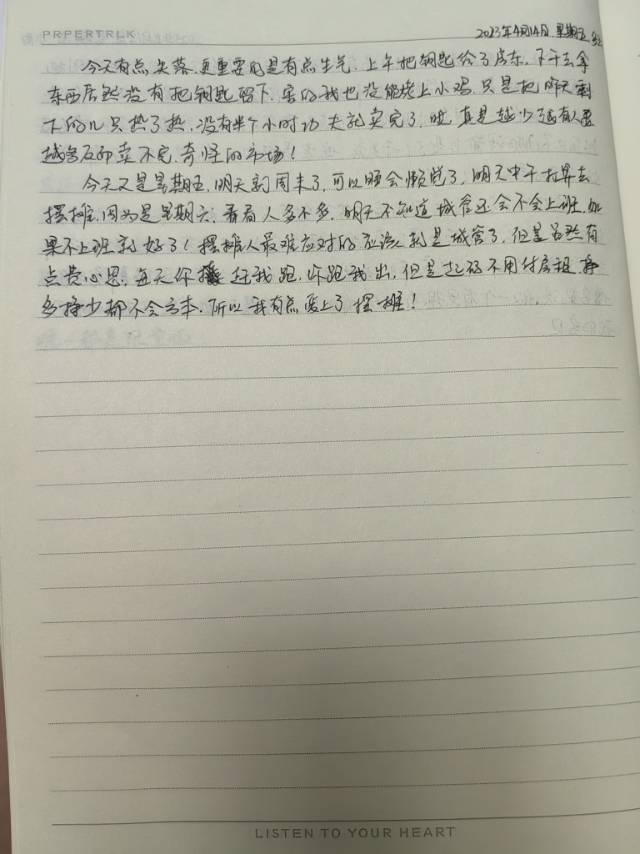 PRPERTRLK
2023年4月14日 星期五
今天有点失落,更重要的是有点生气,上午把钥匙给了房东,下午去拿
东西居然没有把钥匙留下,害的我也没能烤上小鸡,只是把昨天剩
下的几只热了热,没有半个小时功夫就卖完了,哎,真是越少越有人要
越多反而卖不完,奇怪的市场!
今天又是星期五,明天就周末了,可以睡会懒觉了,明天中午拉弄去
摆摊,因为是星期六,看看人多不多,明天不知道城管还会不会上班,如
果不上班就好了!摆摊人最难应对的应该就是城管了,但是虽然有
点费心思,每天你赶我跑,你跑我出,但是起码不用付房租,挣
多挣少都不会亏本,所以我有点爱上了摆摊!
LISTEN TO YOUR HEART